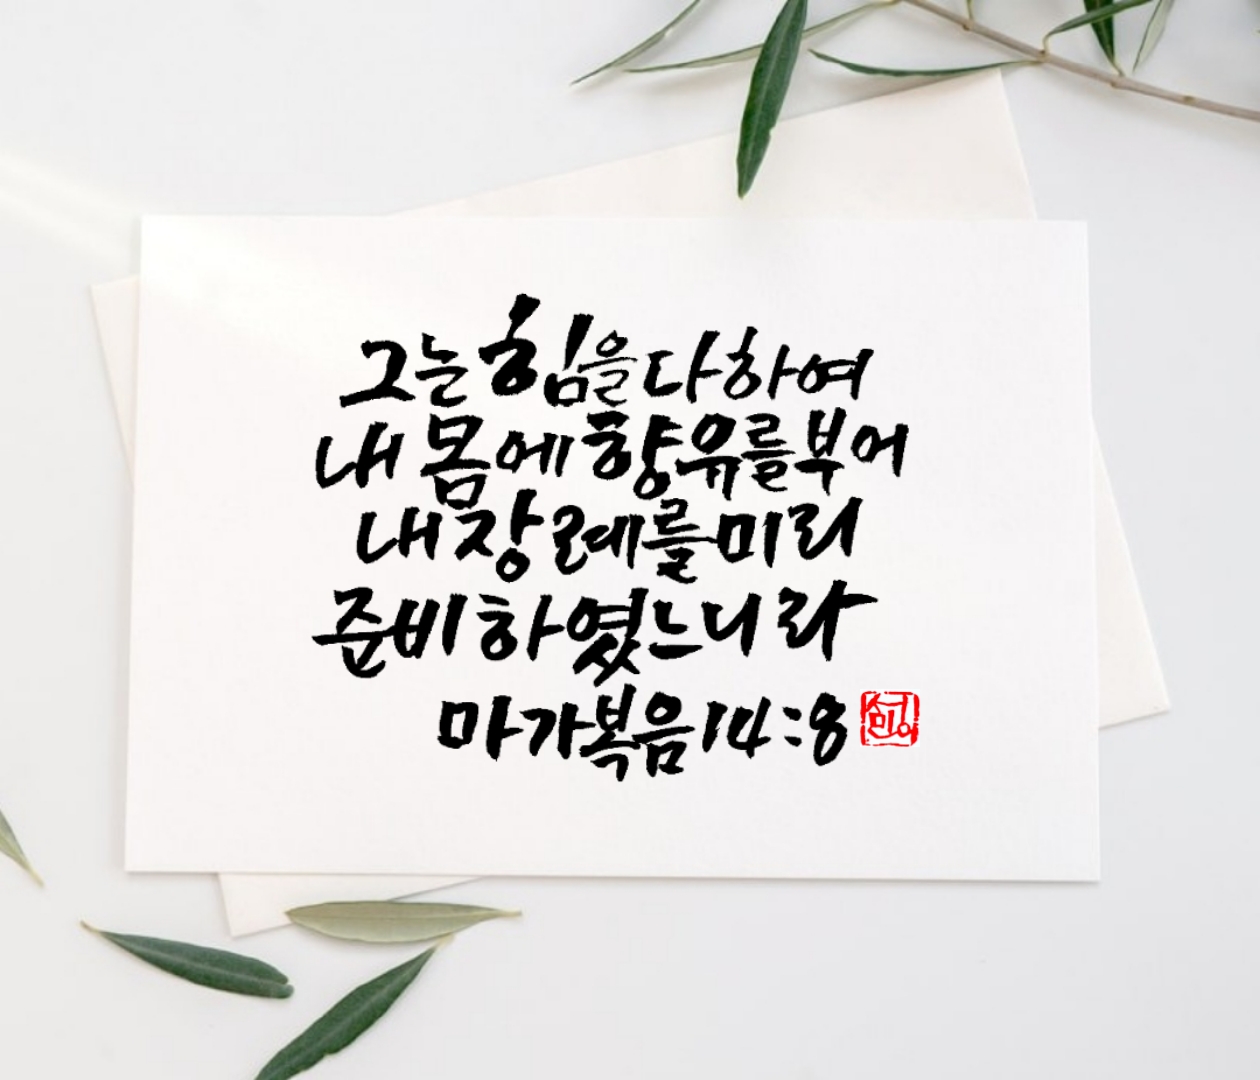 그는 힘을 다하여
내 몸에 향유를 부어
내 장례를 미리
준비하였느니라
마가복음 14:8